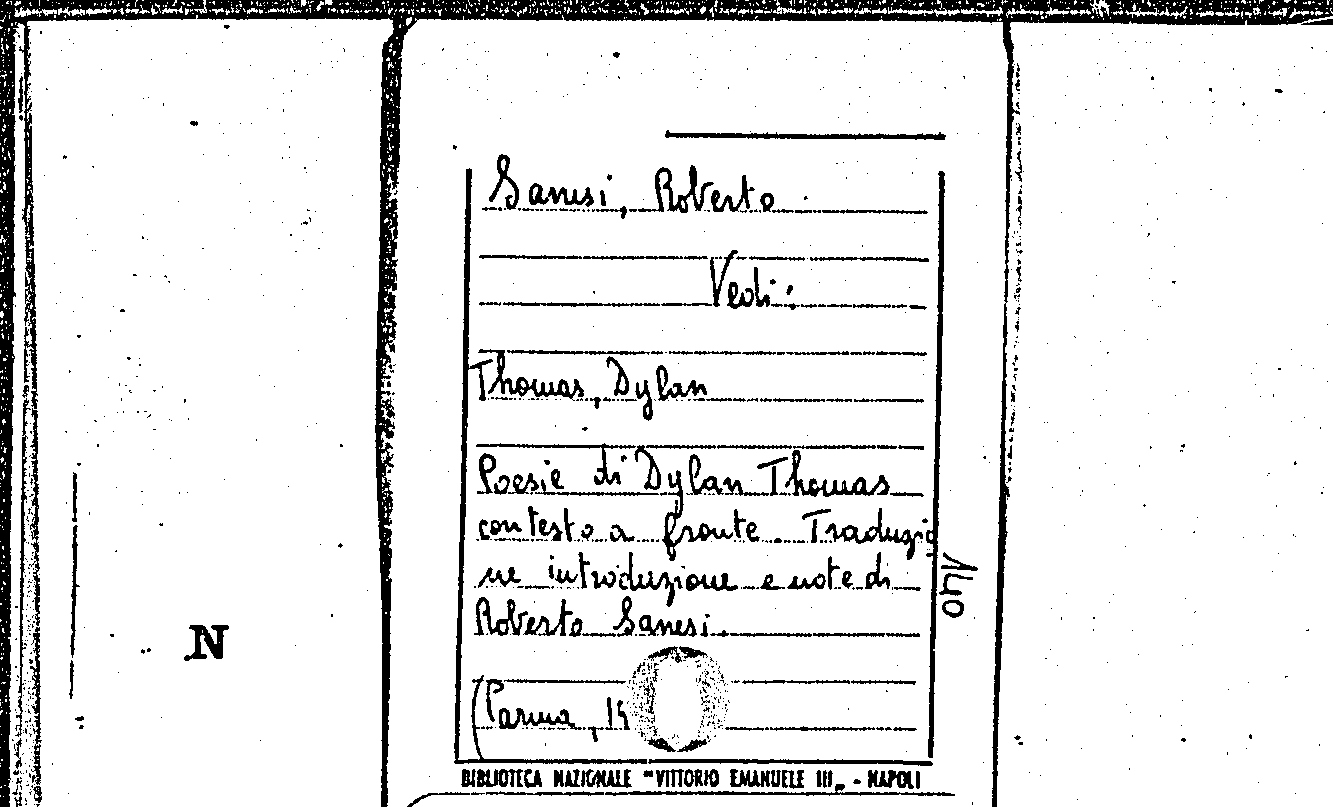 Sanesi, Roberto
Vedi:
Thomas, Dylan
Poesie di Dylan Thomas
con testo a fronte. Traduzio
ne introduzione e note di
Roberto Sanesi.
(Parma,
140
N
BIBLIOTECA NAZIONALE "VITTORIO EMANUELE III„ - NAPOLI